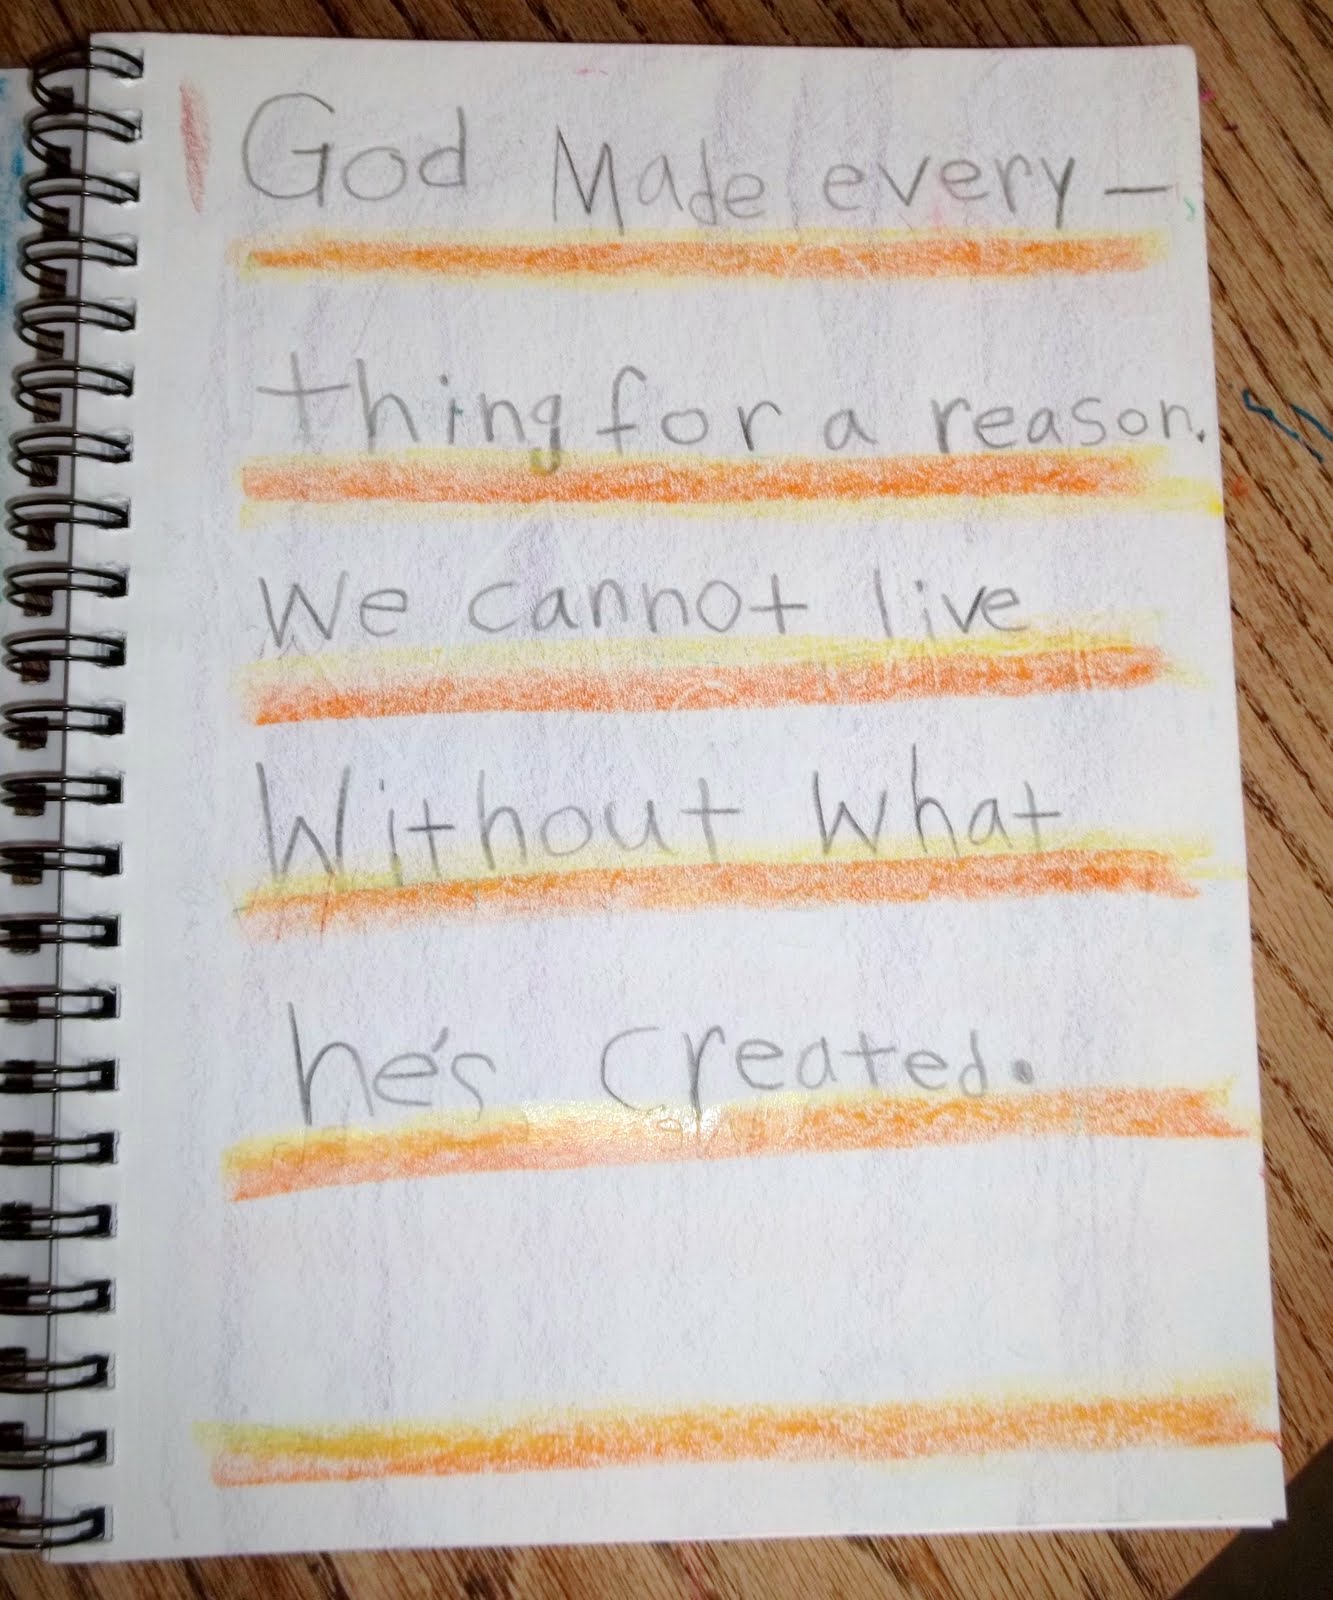 God Made every-
thing for a reason.
We cannot live
Without What
he's created.